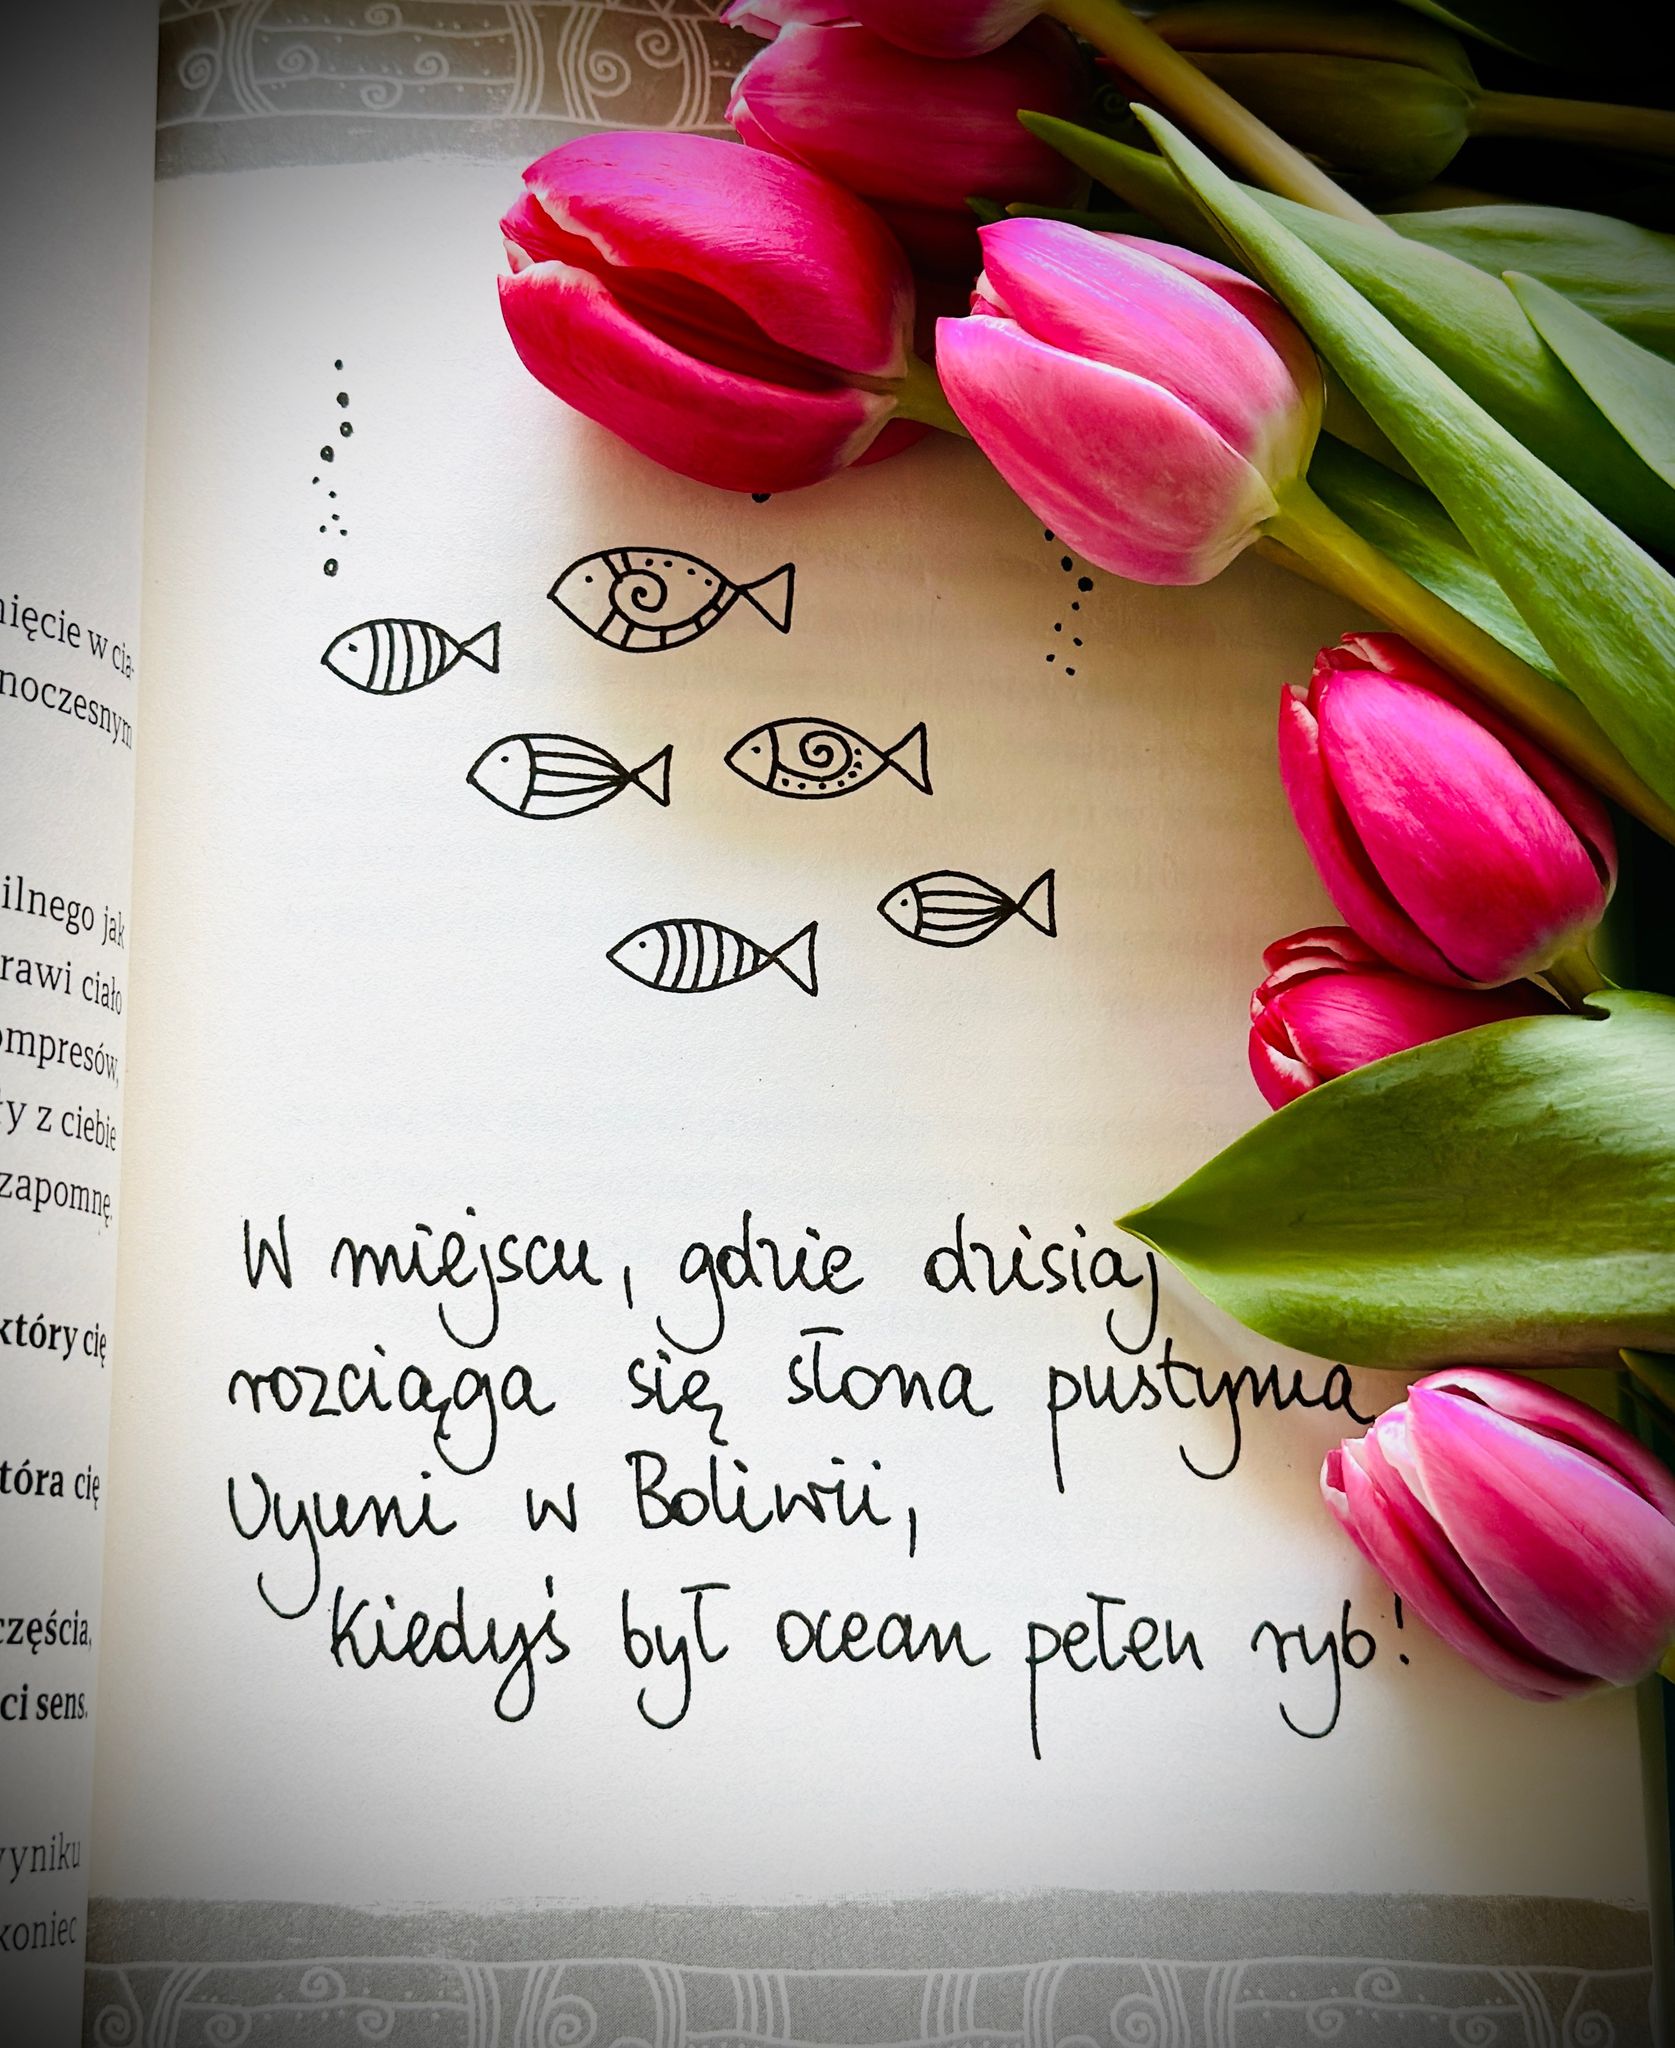 nięcie w cia-
noczesnym
ilnego jak
rawi ciało
ompresów,
ty z ciebie
zapomnę.
który cię
tóra cię
częścia,
ci sens.
yniku
koniec
W miejscu, gdzie dzisiaj
rozciąga się słona pustynia
Uyuni w Boliwii,
kiedyś był ocean pełen ryb!